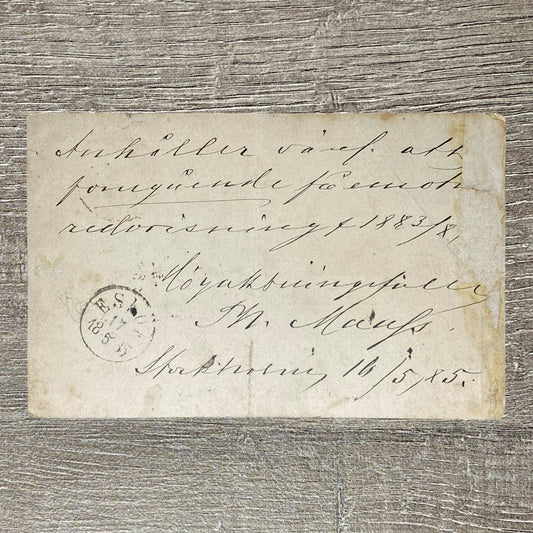 Anhåller vänl. att
fomgående få emot
redovisning f 1883/8,
Högaktningsfullt
Th. Mauss.
Stockholm, 16/5, 85.
ESLÖF
17
5
18 85